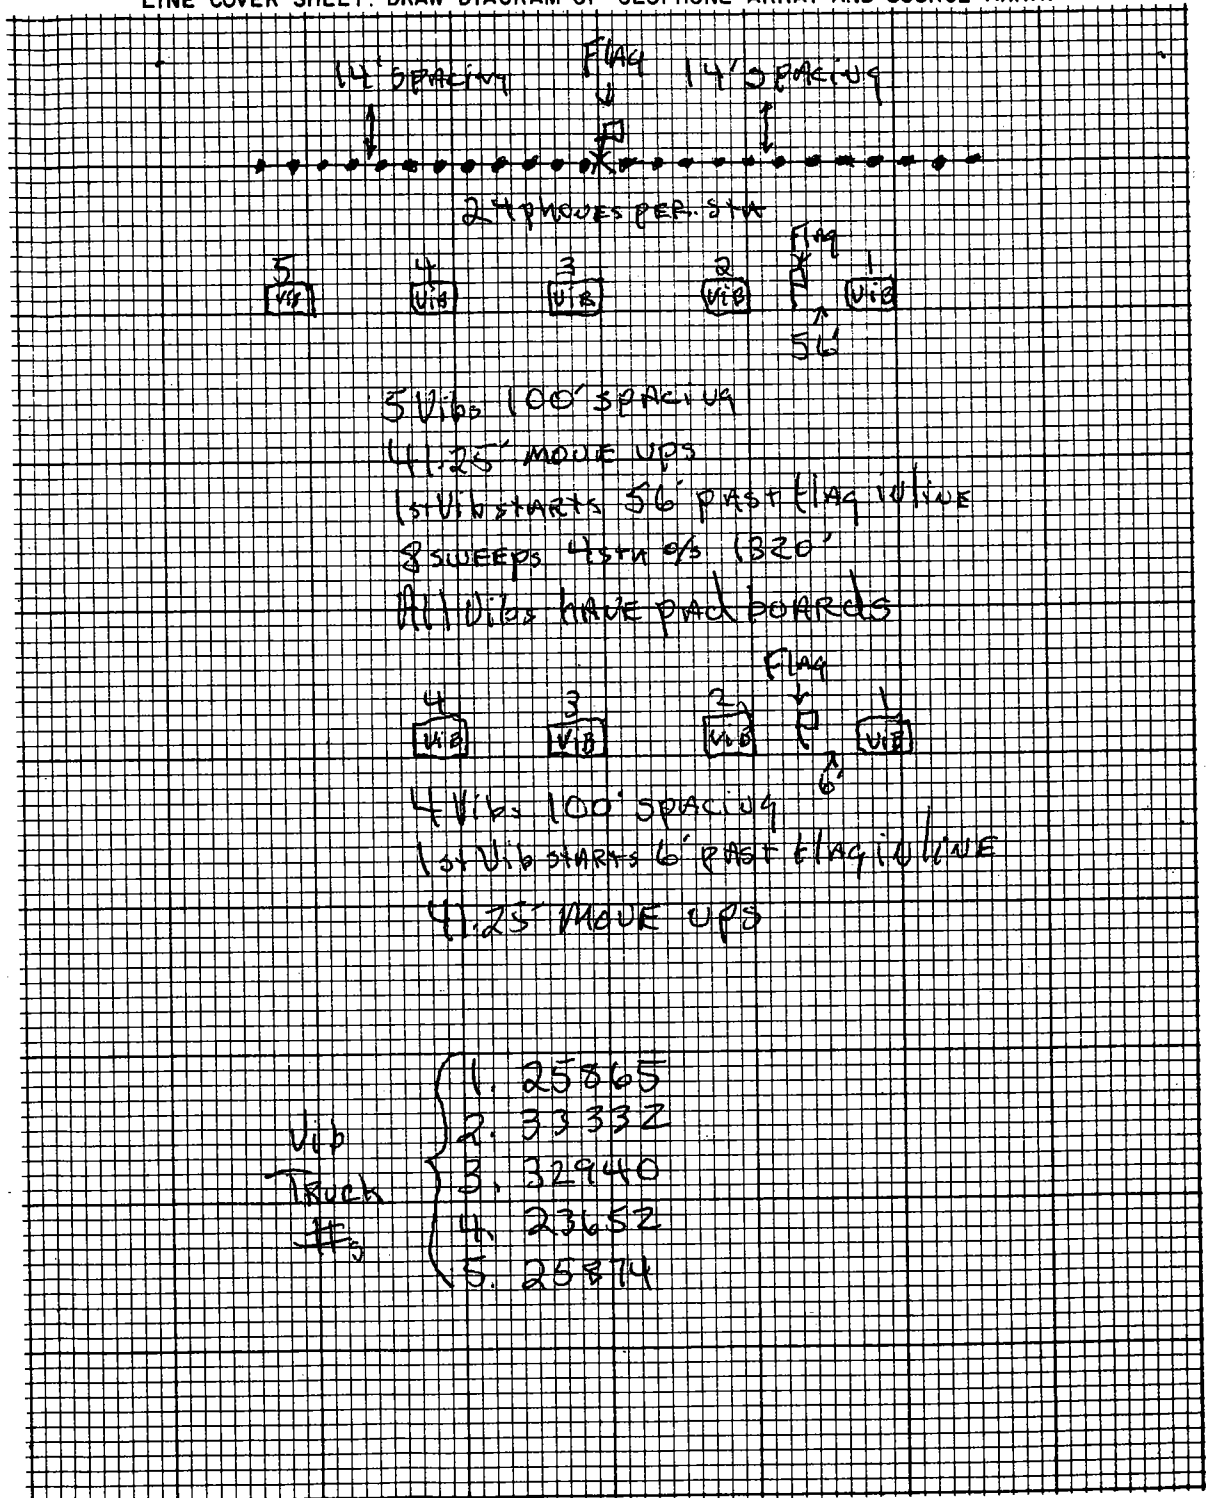 LINE COVER SHEET: DRAW DIAGRAM OF GEOPHONE ARRAY AND SOURCE ARRAY
Flag
14' spacing 14' spacing
24 phones per stn
Flag
5 4 3 2 1
Vib Vib Vib Vib Vib
56'
5 Vibs 100' spacing
41.25' move ups
1st Vib starts 56' past flag inline
8 sweeps 4 stn o/s 1320'
All Vibs have pad boards
Flag
4 3 2 1
Vib Vib Vib Vib
6'
4 Vibs 100' spacing
1st Vib starts 6' past flag inline
41.25' move ups
Vib Truck #s
1. 25865
2. 33332
3. 32940
4. 23652
5. 25874